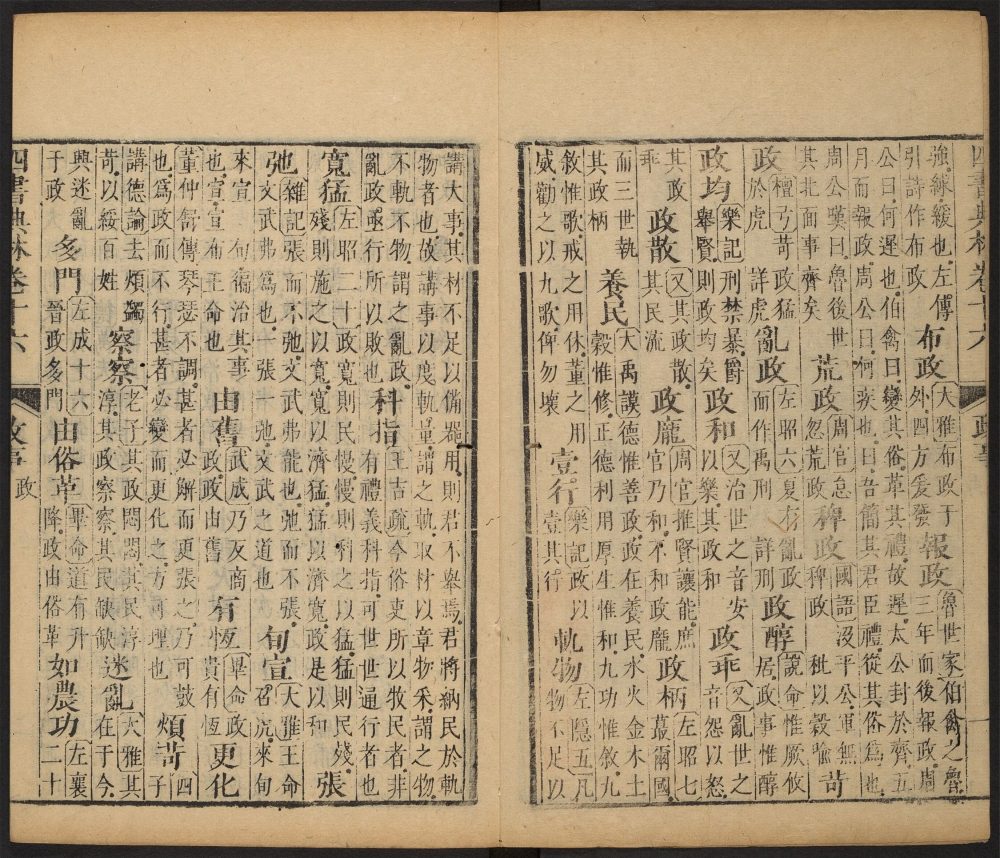 四書典林卷十六 政事
強.練緩也.左傳引詩作布政 布政 大雅布政于外.四方爰發 報政 魯世家伯禽之魯三年而後報政.周
公曰.何遲也.伯禽曰.變其俗.革其禮.故遲.太公封於齊.五
月而報政.周公曰.何疾也.吾簡其君臣禮.從其俗爲也
周公嘆曰.魯後世其北面事齊矣 荒政 周官怠忽荒政 稗政 國語.沒平公軍無稗政 秕以穀喻 苛
政 檀弓苛政猛於虎 詳虎 亂政 左昭六夏有亂政而作禹刑 詳刑 政醇 說命惟厥攸居.政事惟醇
政均 樂記刑禁暴.爵舉賢則政均矣 政和 又治世之音安以樂.其政和 政乖 又亂世之音怨以怒.
其政乖 政散 又其政散.其民流 政厖 周官推賢讓能.庶官乃和.不和政厖 政柄 左昭七蕞爾國.
而三世執其政柄 養民 大禹謨德惟善政.政在養民.水火金木土穀惟修.正德利用厚生惟和.九功惟敘.九
敘惟歌.戒之用休.董之用威.勸之以九歌.俾勿壞 壹行 樂記政以壹其行 軌物 左隱五凡物不足以
講大事.其材不足以備器用.則君不舉焉.君將納民於軌
物者也.故講事以度軌量謂之軌.取材以章物采.謂之物
不軌不物.謂之亂政.亂政亟行.所以敗也 科指 王吉疏.今俗吏所以牧民者.非有禮義科指.可世世通行者也
寬猛 左昭二十政寬則民慢.慢則糾之以猛.猛則民殘.殘則施之以寬.寬以濟猛.猛以濟寬.政是以和 張
弛 雜記張而不弛.文武弗能也.弛而不張.文武弗爲也.一張一弛.文武之道也 旬宣 大雅王命召虎.來旬
來宣 旬徧治其事也.宣.宣布王命也 由舊 武成乃反商政.政由舊 有恆 畢命政貴有恆 更化
董仲舒傳琴瑟不調.甚者必解而更張之.乃可鼓也.爲政而不行.甚者必變而更化之.方可理也 煩苛 四子
講德論去煩蠲苛.以綏百姓 察察 老子其政悶悶.其民淳淳.其政察察.其民缺缺 迷亂 大雅其在于今.
興迷亂于政 多門 左成十六晉政多門 由俗革 畢命道有升降.政由俗革 如農功 左襄二十
四書典林卷十六 政事 政